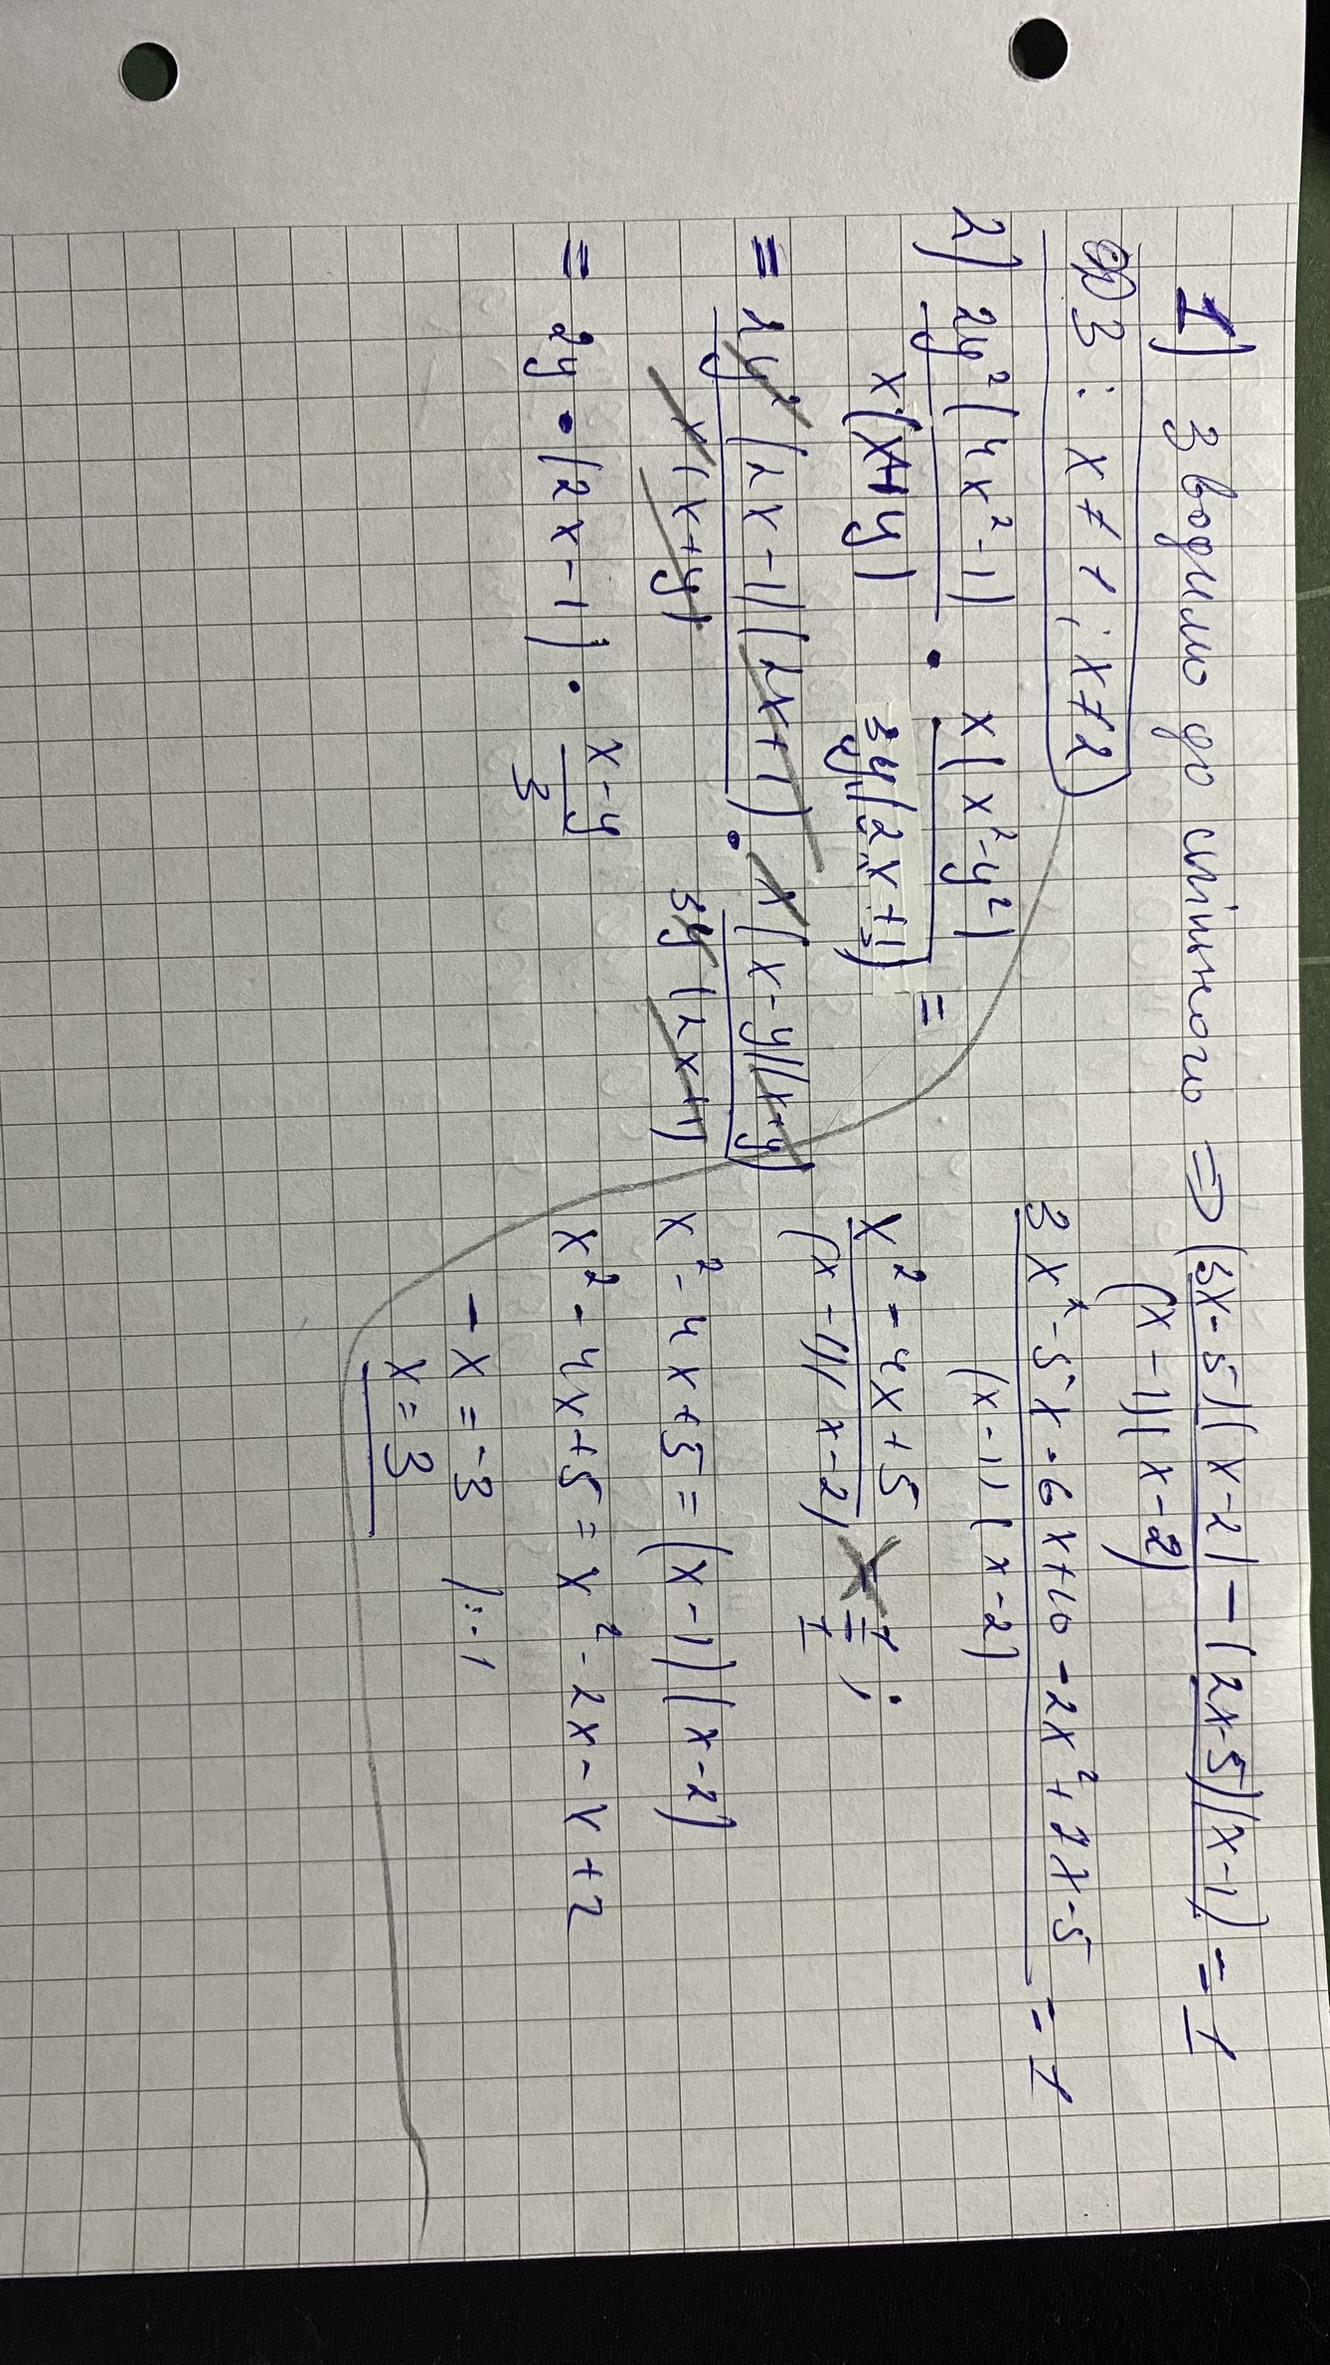 1) Зводимо до спільного => (3x-5)(x-2) - (2x-5)(x-1) = 1
(x-1)(x-2)
ОДЗ: x ≠ 1; x ≠ 2
3x² - 5x - 6x + 10 - 2x² + 7x - 5 = 1
(x-1)(x-2)
x² - 4x + 5
(x-1)(x-2)
1
1 ;
x² - 4x + 5 = (x-1)(x-2)
x² - 4x + 5 = x² - 2x - x + 2
-x = -3 /:-1
x = 3
2) 2y²(4x²-1) • x(x²-y²) =
x(x+y) 3y(2x+1)
= 2y²(2x-1)(2x+1) • x(x-y)(x+y)
x(x+y) 3y(2x+1)
= 2y • (2x-1) • x-y
3